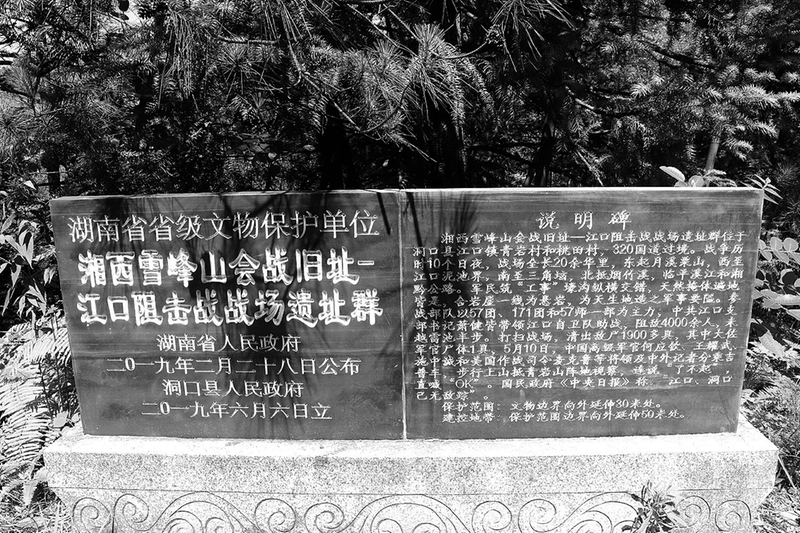 湖南省省级文物保护单位
湘西雪峰山会战旧址-
江口阻击战战场遗址群
湖南省人民政府
二〇一九年二月二十八日公布
洞口县人民政府
二〇一九年六月六日立
说明碑
湘西雪峰山会战旧址—江口阻击战战场遗址群位于
洞口县江口镇青岩村和桃的村，320国道过境。战争历
时10个日夜，战场全长20余华里，东起月溪栗山，西至
江口泥池界，南至三角塘，北抵烟竹溪，临平溪江和湘
黔公路。军民筑"工事"壕沟纵横交错，天然掩体遍地
皆是。含岩屋一线为悬岩，为天生地造之军事要隘。参
战部队以57团、171团和57师一部为主力，中共江口支
部书记萧健皆带领江口自卫队助战，阻敌4000余人，未
越雷池半步。打扫战场，清出敌尸1900多具，其中大佐
军官尸体1具。5月10日，中国高级军官何应钦、王耀武、
普城和美国作战司令麦克鲁等将领及中外记者分乘吉
车，步行上山抵青岩山阵地视察，连说"了不起"，
直喊"OK"。国民政府《中央日报》称"江口、洞口
已无敌踪"。
保护范围：文物边界向外延伸30米处。
建控地带：保护范围边界向外延伸50米处。